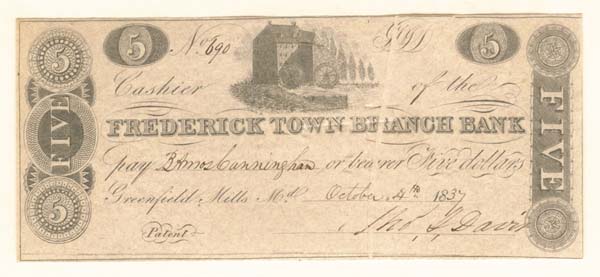 5 No 690 5
5 Cashier of the
FREDERICK TOWN BRANCH BANK
FIVE
pay B Amos Cunningham or bearer Five dollars
Greenfield Mills Md. October 4th 1837
5
Patent Tho. J. Davis
FIVE